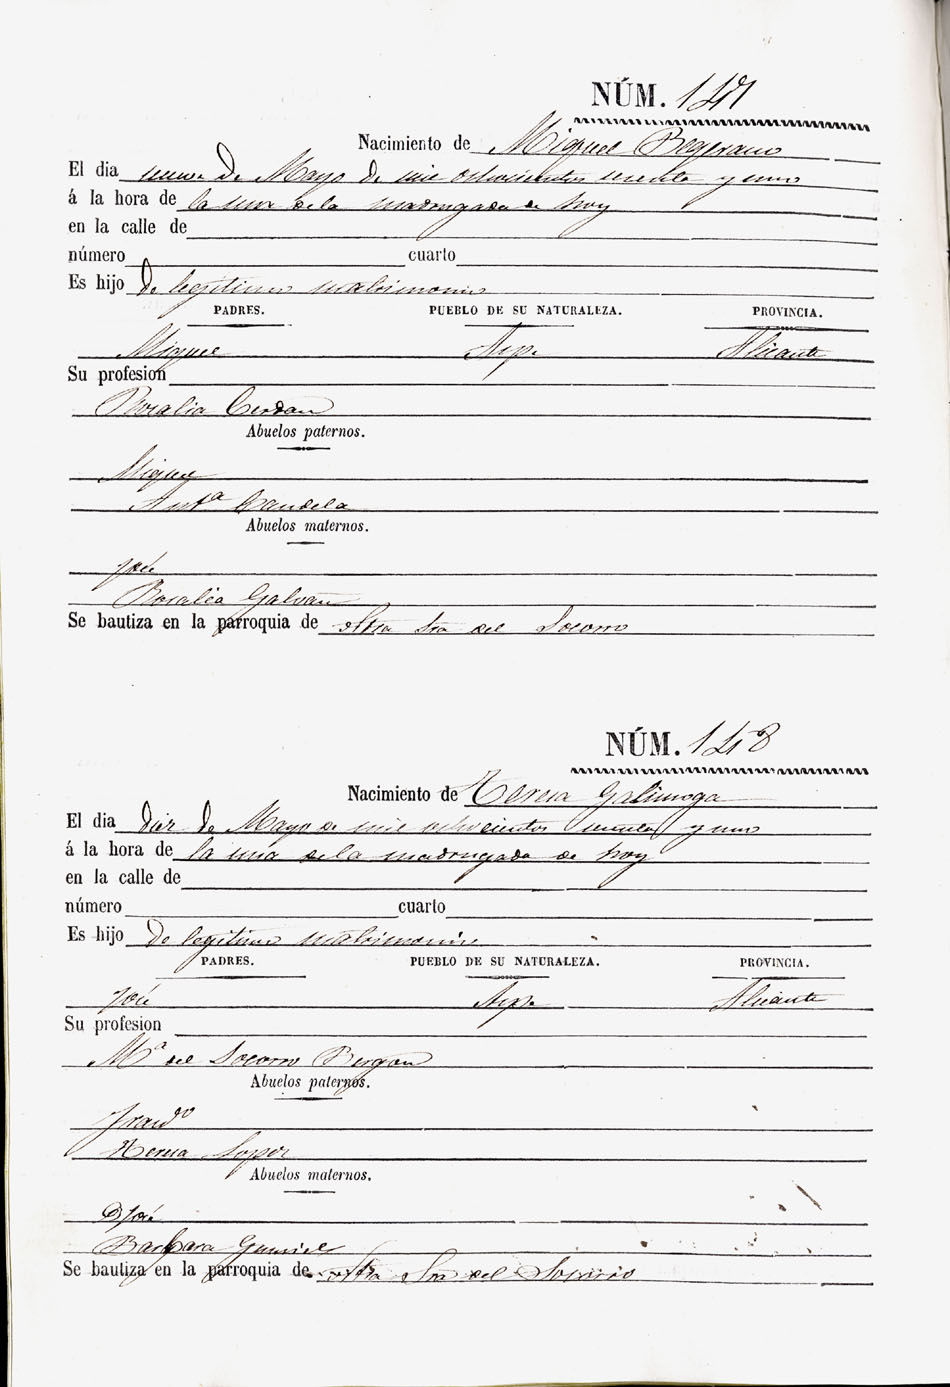 NÚM. 147
Nacimiento de Miguel Bejerano
El dia nueve de Mayo de mil ochocientos sesenta y uno
á la hora de la una de la madrugada de hoy
en la calle de
número cuarto
Es hijo de legitimo matrimonio
PADRES. PUEBLO DE SU NATURALEZA. PROVINCIA.
Miguel Aspe Alicante
Su profesion
Rosalia Cerdan
Abuelos paternos.
Miguel
Antª Candela
Abuelos maternos.
José
Rosalia Galvañ
Se bautiza en la parroquia de Ntra Sra del Socorro
NÚM. 148
Nacimiento de Teresa
El dia diez de Mayo de mil ochocientos sesenta y uno
á la hora de la una de la madrugada de hoy
en la calle de
número cuarto
Es hijo de legitimo matrimonio
PADRES. PUEBLO DE SU NATURALEZA. PROVINCIA.
José Aspe Alicante
Su profesion
Mª del Socorro
Abuelos paternos.
Teresa Lopez
Abuelos maternos.
José
Barbara
Se bautiza en la parroquia de Ntra Sra del Socorro